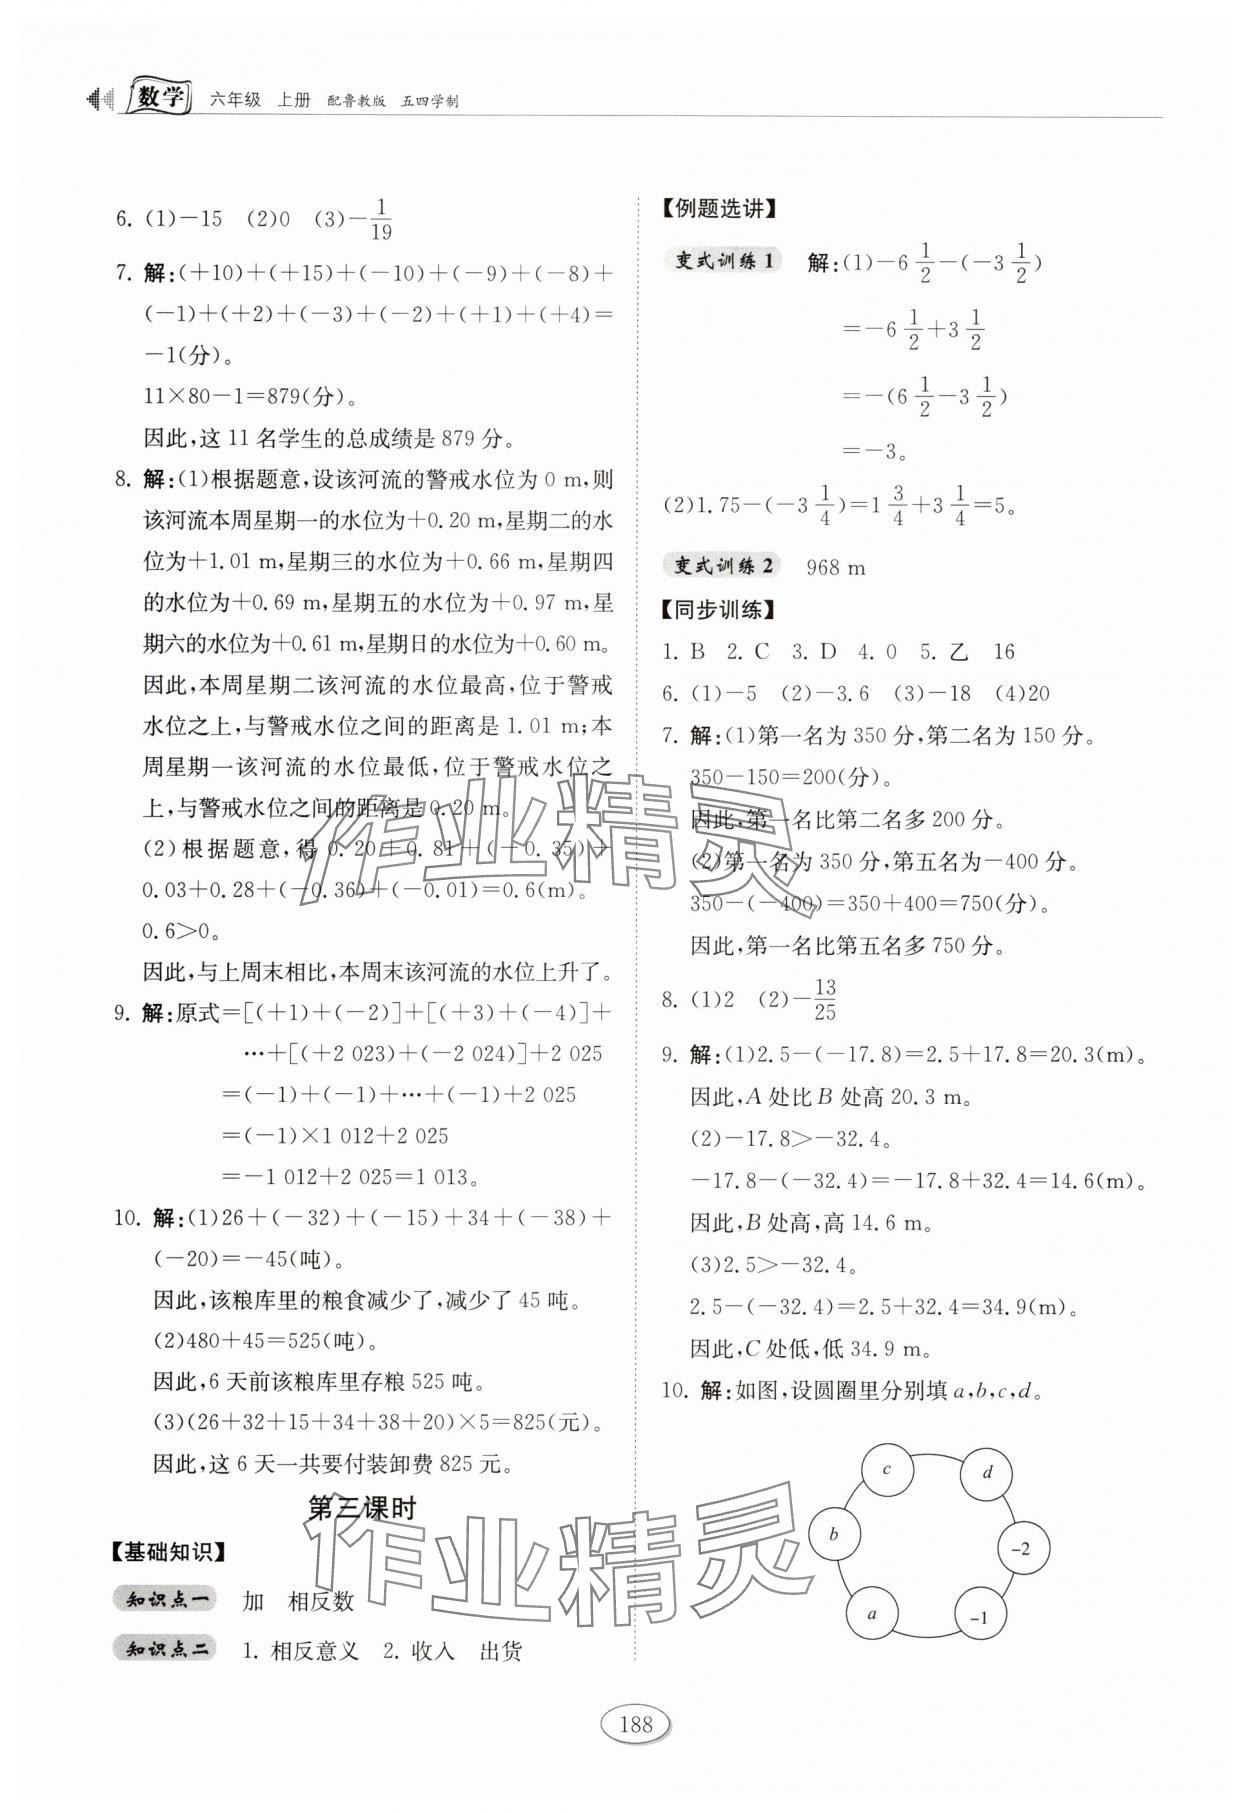 数学 六年级 上册 配鲁教版 五四学制
6. (1)-15 (2)0 (3)-1/19
7. 解:(+10)+(+15)+(-10)+(-9)+(-8)+
(-1)+(+2)+(-3)+(-2)+(+1)+(+4)=
-1(分)。
11×80-1=879(分)。
因此,这 11 名学生的总成绩是 879 分。
8. 解:(1)根据题意,设该河流的警戒水位为 0 m,则
该河流本周星期一的水位为+0.20 m,星期二的水
位为+1.01 m,星期三的水位为+0.66 m,星期四
的水位为+0.69 m,星期五的水位为+0.97 m,星
期六的水位为+0.61 m,星期日的水位为+0.60 m。
因此,本周星期二该河流的水位最高,位于警戒
水位之上,与警戒水位之间的距离是 1.01 m;本
周星期一该河流的水位最低,位于警戒水位之
上,与警戒水位之间的距离是 0.20 m。
(2)根据题意,得 0.20+0.81+(-0.35)+
0.03+0.28+(-0.36)+(-0.01)=0.6(m)。
0.6>0。
因此,与上周末相比,本周末该河流的水位上升了。
9. 解:原式=[(+1)+(-2)]+[(+3)+(-4)]+
…+[(+2 023)+(-2 024)]+2 025
=(-1)+(-1)+…+(-1)+2 025
=(-1)×1 012+2 025
=-1 012+2 025=1 013。
10. 解:(1)26+(-32)+(-15)+34+(-38)+
(-20)=-45(吨)。
因此,该粮库里的粮食减少了,减少了 45 吨。
(2)480+45=525(吨)。
因此,6 天前该粮库里存粮 525 吨。
(3)(26+32+15+34+38+20)×5=825(元)。
因此,这 6 天一共要付装卸费 825 元。
第三课时
【基础知识】
知识点一 加 相反数
知识点二 1. 相反意义 2. 收入 出货
【例题选讲】
变式训练 1 解:(1)-6 1/2-(-3 1/2)
=-6 1/2+3 1/2
=-(6 1/2-3 1/2)
=-3。
(2)1.75-(-3 1/4)=1 3/4+3 1/4=5。
变式训练 2 968 m
【同步训练】
1. B 2. C 3. D 4. 0 5. 乙 16
6. (1)-5 (2)-3.6 (3)-18 (4)20
7. 解:(1)第一名为 350 分,第二名为 150 分。
350-150=200(分)。
因此,第一名比第二名多 200 分。
(2)第一名为 350 分,第五名为-400 分。
350-(-400)=350+400=750(分)。
因此,第一名比第五名多 750 分。
8. (1)2 (2)-13/25
9. 解:(1)2.5-(-17.8)=2.5+17.8=20.3(m)。
因此,A 处比 B 处高 20.3 m。
(2)-17.8>-32.4。
-17.8-(-32.4)=-17.8+32.4=14.6(m)。
因此,B 处高,高 14.6 m。
(3)2.5>-32.4。
2.5-(-32.4)=2.5+32.4=34.9(m)。
因此,C 处低,低 34.9 m。
10. 解:如图,设圆圈里分别填 a,b,c,d。
c d
b -2
a -1
作业精灵
作业精灵
188